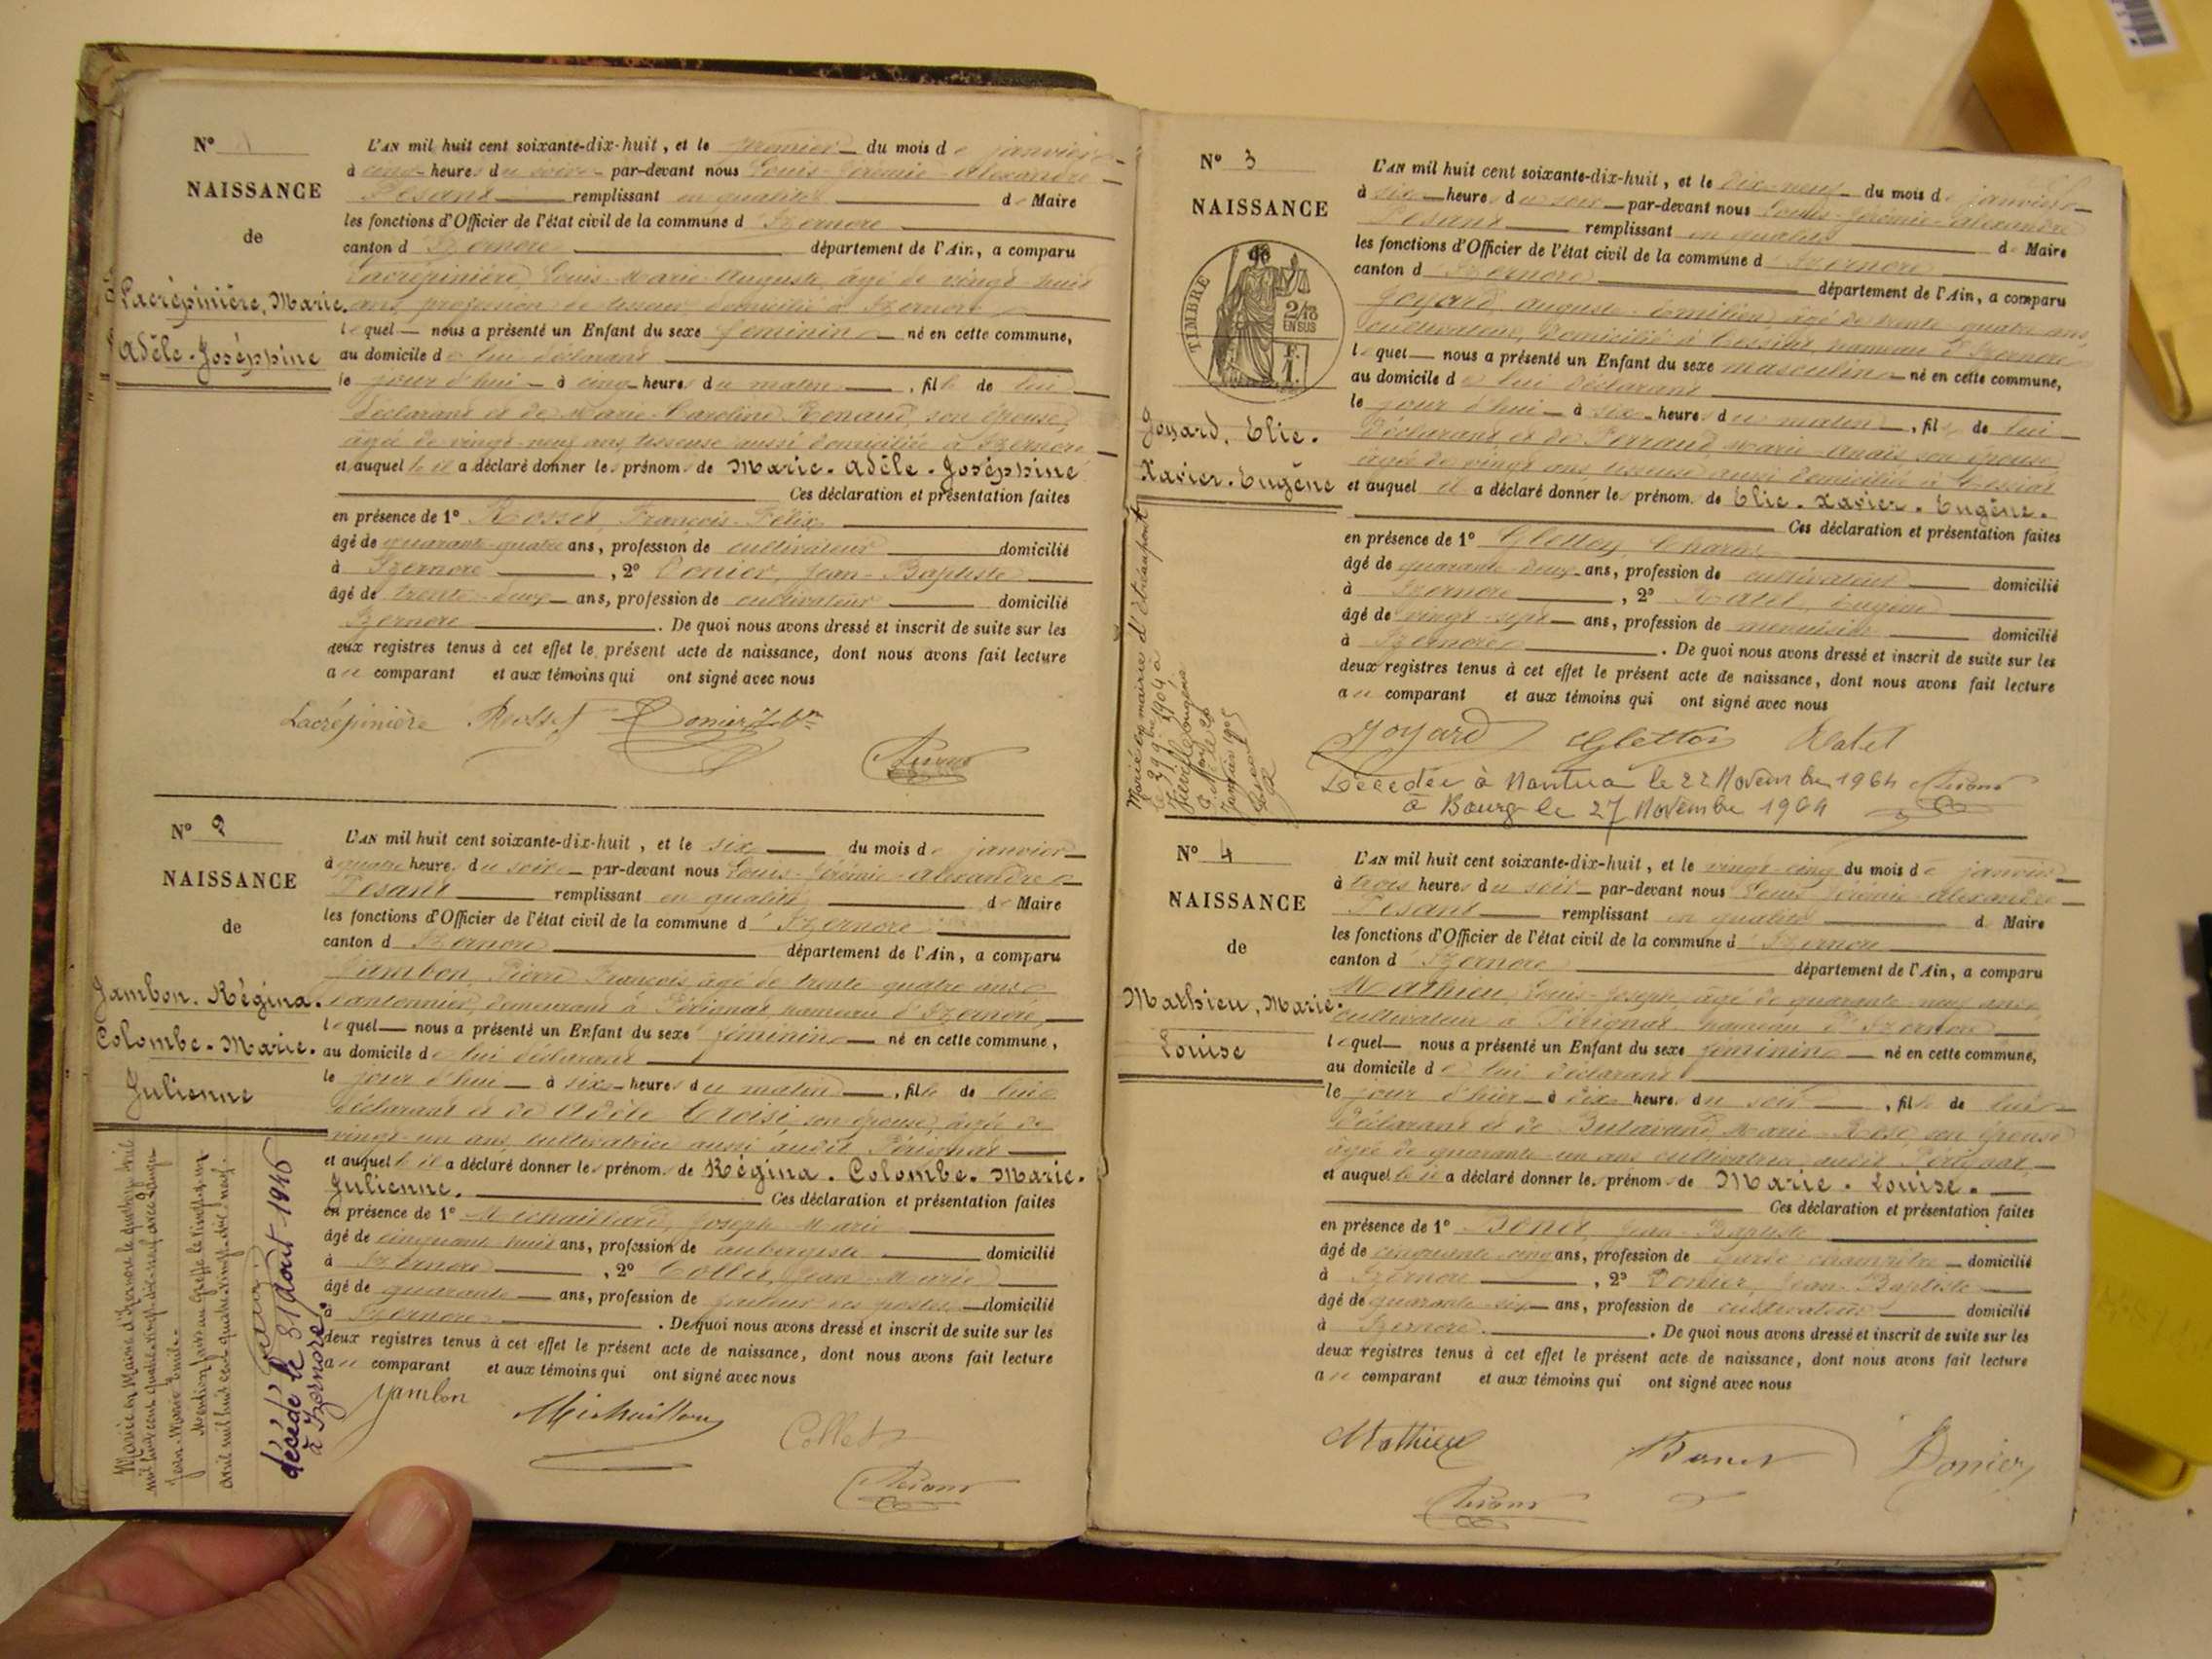 N° 1
NAISSANCE
de
Lacrépinière, Marie.
Adèle-Joséphine
L'AN mil huit cent soixante-dix-huit, et le premier du mois de janvier
à cinq heures du soir par-devant nous Louis-Jérémie-Alexandre
Pesant remplissant en qualité de Maire
les fonctions d'Officier de l'état civil de la commune d'Izernore
canton d'Izernore département de l'Ain, a comparu
Lacrépinière, Louis-Marie-Auguste, âgé de vingt-huit
ans, profession de tisseur domicilié à Izernore
lequel nous a présenté un Enfant du sexe féminin né en cette commune,
au domicile de lui déclarant
le jour d'hui à cinq heures du matin, fille de lui
déclarant et de Marie-Caroline Renaud, son épouse,
âgée de vingt-neuf ans, tisseuse aussi domiciliée à Izernore
et auquel il a déclaré donner les prénoms de Marie-Adèle-Joséphine
Ces déclaration et présentation faites
en présence de 1° Rosset, François-Félix
âgé de quarante-quatre ans, profession de cultivateur domicilié
à Izernore, 2° Donier, Jean-Baptiste
âgé de trente-deux ans, profession de cultivateur domicilié
Izernore. De quoi nous avons dressé et inscrit de suite sur les
deux registres tenus à cet effet le présent acte de naissance, dont nous avons fait lecture
au comparant et aux témoins qui ont signé avec nous
Lacrépinière Rosset Donier J Btte
Pesant
N° 2
NAISSANCE
de
Jambon. Régina.
Colombe-Marie.
Julienne
L'AN mil huit cent soixante-dix-huit, et le six du mois de janvier
à quatre heures du soir par-devant nous Louis-Jérémie-Alexandre
Pesant remplissant en qualité de Maire
les fonctions d'Officier de l'état civil de la commune d'Izernore
canton d'Izernore département de l'Ain, a comparu
Jambon, Pierre François, âgé de trente quatre ans
cantonnier, demeurant à Pérignat hameau d'Izernore,
lequel nous a présenté un Enfant du sexe féminin né en cette commune,
au domicile de lui déclarant
le jour d'hui à six heures du matin, fille de lui
déclarant et de Adèle Croisi, son épouse, âgée de
vingt-un ans, cultivatrice aussi audit Pérignat
et auquel il a déclaré donner les prénoms de Régina. Colombe. Marie.
Julienne. Ces déclaration et présentation faites
en présence de 1° Michaillard, Joseph-Marie
âgé de cinquante huit ans, profession de aubergiste domicilié
à Izernore, 2° Collet, Jean-Marie
âgé de quarante ans, profession de facteur des postes domicilié
à Izernore. De quoi nous avons dressé et inscrit de suite sur les
deux registres tenus à cet effet le présent acte de naissance, dont nous avons fait lecture
au comparant et aux témoins qui ont signé avec nous
Jambon Michaillard Collet
Pesant
Mariée en Mairie d'Izernore le quatorze avril
mil huit cent quatre vingt dix neuf avec
Jean-Marie Emile.
décédé le 31 août 1946
à Izernore
N° 3
NAISSANCE
TIMBRE
2/10
EN SUS
Joyard, Elie.
Xavier-Eugène
L'AN mil huit cent soixante-dix-huit, et le dix-neuf du mois de janvier
à six heures du soir par-devant nous Louis-Jérémie-Alexandre
Pesant remplissant en qualité de Maire
les fonctions d'Officier de l'état civil de la commune d'Izernore
canton d'Izernore département de l'Ain, a comparu
Joyard, Auguste-Emilien, âgé de trente quatre ans,
cultivateur, domicilié à Cessiat, hameau d'Izernore
lequel nous a présenté un Enfant du sexe masculin né en cette commune,
au domicile de lui déclarant
le jour d'hui à six heures du matin, fils de lui
déclarant et de Ferrand, Marie-Anaïs son épouse
âgée de vingt ans tisseuse aussi domiciliée à Cessiat
et auquel il a déclaré donner les prénoms de Elie. Xavier. Eugène.
Ces déclaration et présentation faites
en présence de 1° Gletton, Charles
âgé de quarante-deux ans, profession de cultivateur domicilié
à Izernore, 2° Ratel, Eugène
âgé de vingt-sept ans, profession de menuisier domicilié
à Izernore. De quoi nous avons dressé et inscrit de suite sur les
deux registres tenus à cet effet le présent acte de naissance, dont nous avons fait lecture
au comparant et aux témoins qui ont signé avec nous
Joyard Gletton Ratel
Décédée à Nantua le 22 Novembre 1964 Pesant
à Bourg le 27 Novembre 1964
Marié en mairie d'
N° 4
NAISSANCE
de
Mathieu, Marie.
Louise
L'AN mil huit cent soixante-dix-huit, et le vingt-cinq du mois de janvier
à trois heures du soir par-devant nous Louis Jérémie-Alexandre
Pesant remplissant en qualité de Maire
les fonctions d'Officier de l'état civil de la commune d'Izernore
canton d'Izernore département de l'Ain, a comparu
Mathieu, Louis-Joseph, âgé de quarante-neuf ans
cultivateur à Pérignat hameau d'Izernore
lequel nous a présenté un Enfant du sexe féminin né en cette commune,
au domicile de lui déclarant
le jour d'hier à dix heures du soir, fille de lui
déclarant et de Butavand, Marie-Rose, son épouse
âgée de quarante-un ans cultivatrice audit Pérignat,
et auquel il a déclaré donner les prénoms de Marie. Louise.
Ces déclaration et présentation faites
en présence de 1° Benet, Jean-Baptiste
âgé de cinquante-cinq ans, profession de garde-champêtre domicilié
à Izernore, 2° Donier, Jean-Baptiste
âgé de quarante-six ans, profession de cultivateur domicilié
à Izernore. De quoi nous avons dressé et inscrit de suite sur les
deux registres tenus à cet effet le présent acte de naissance, dont nous avons fait lecture
au comparant et aux témoins qui ont signé avec nous
Mathieu Benet Donier
Pesant